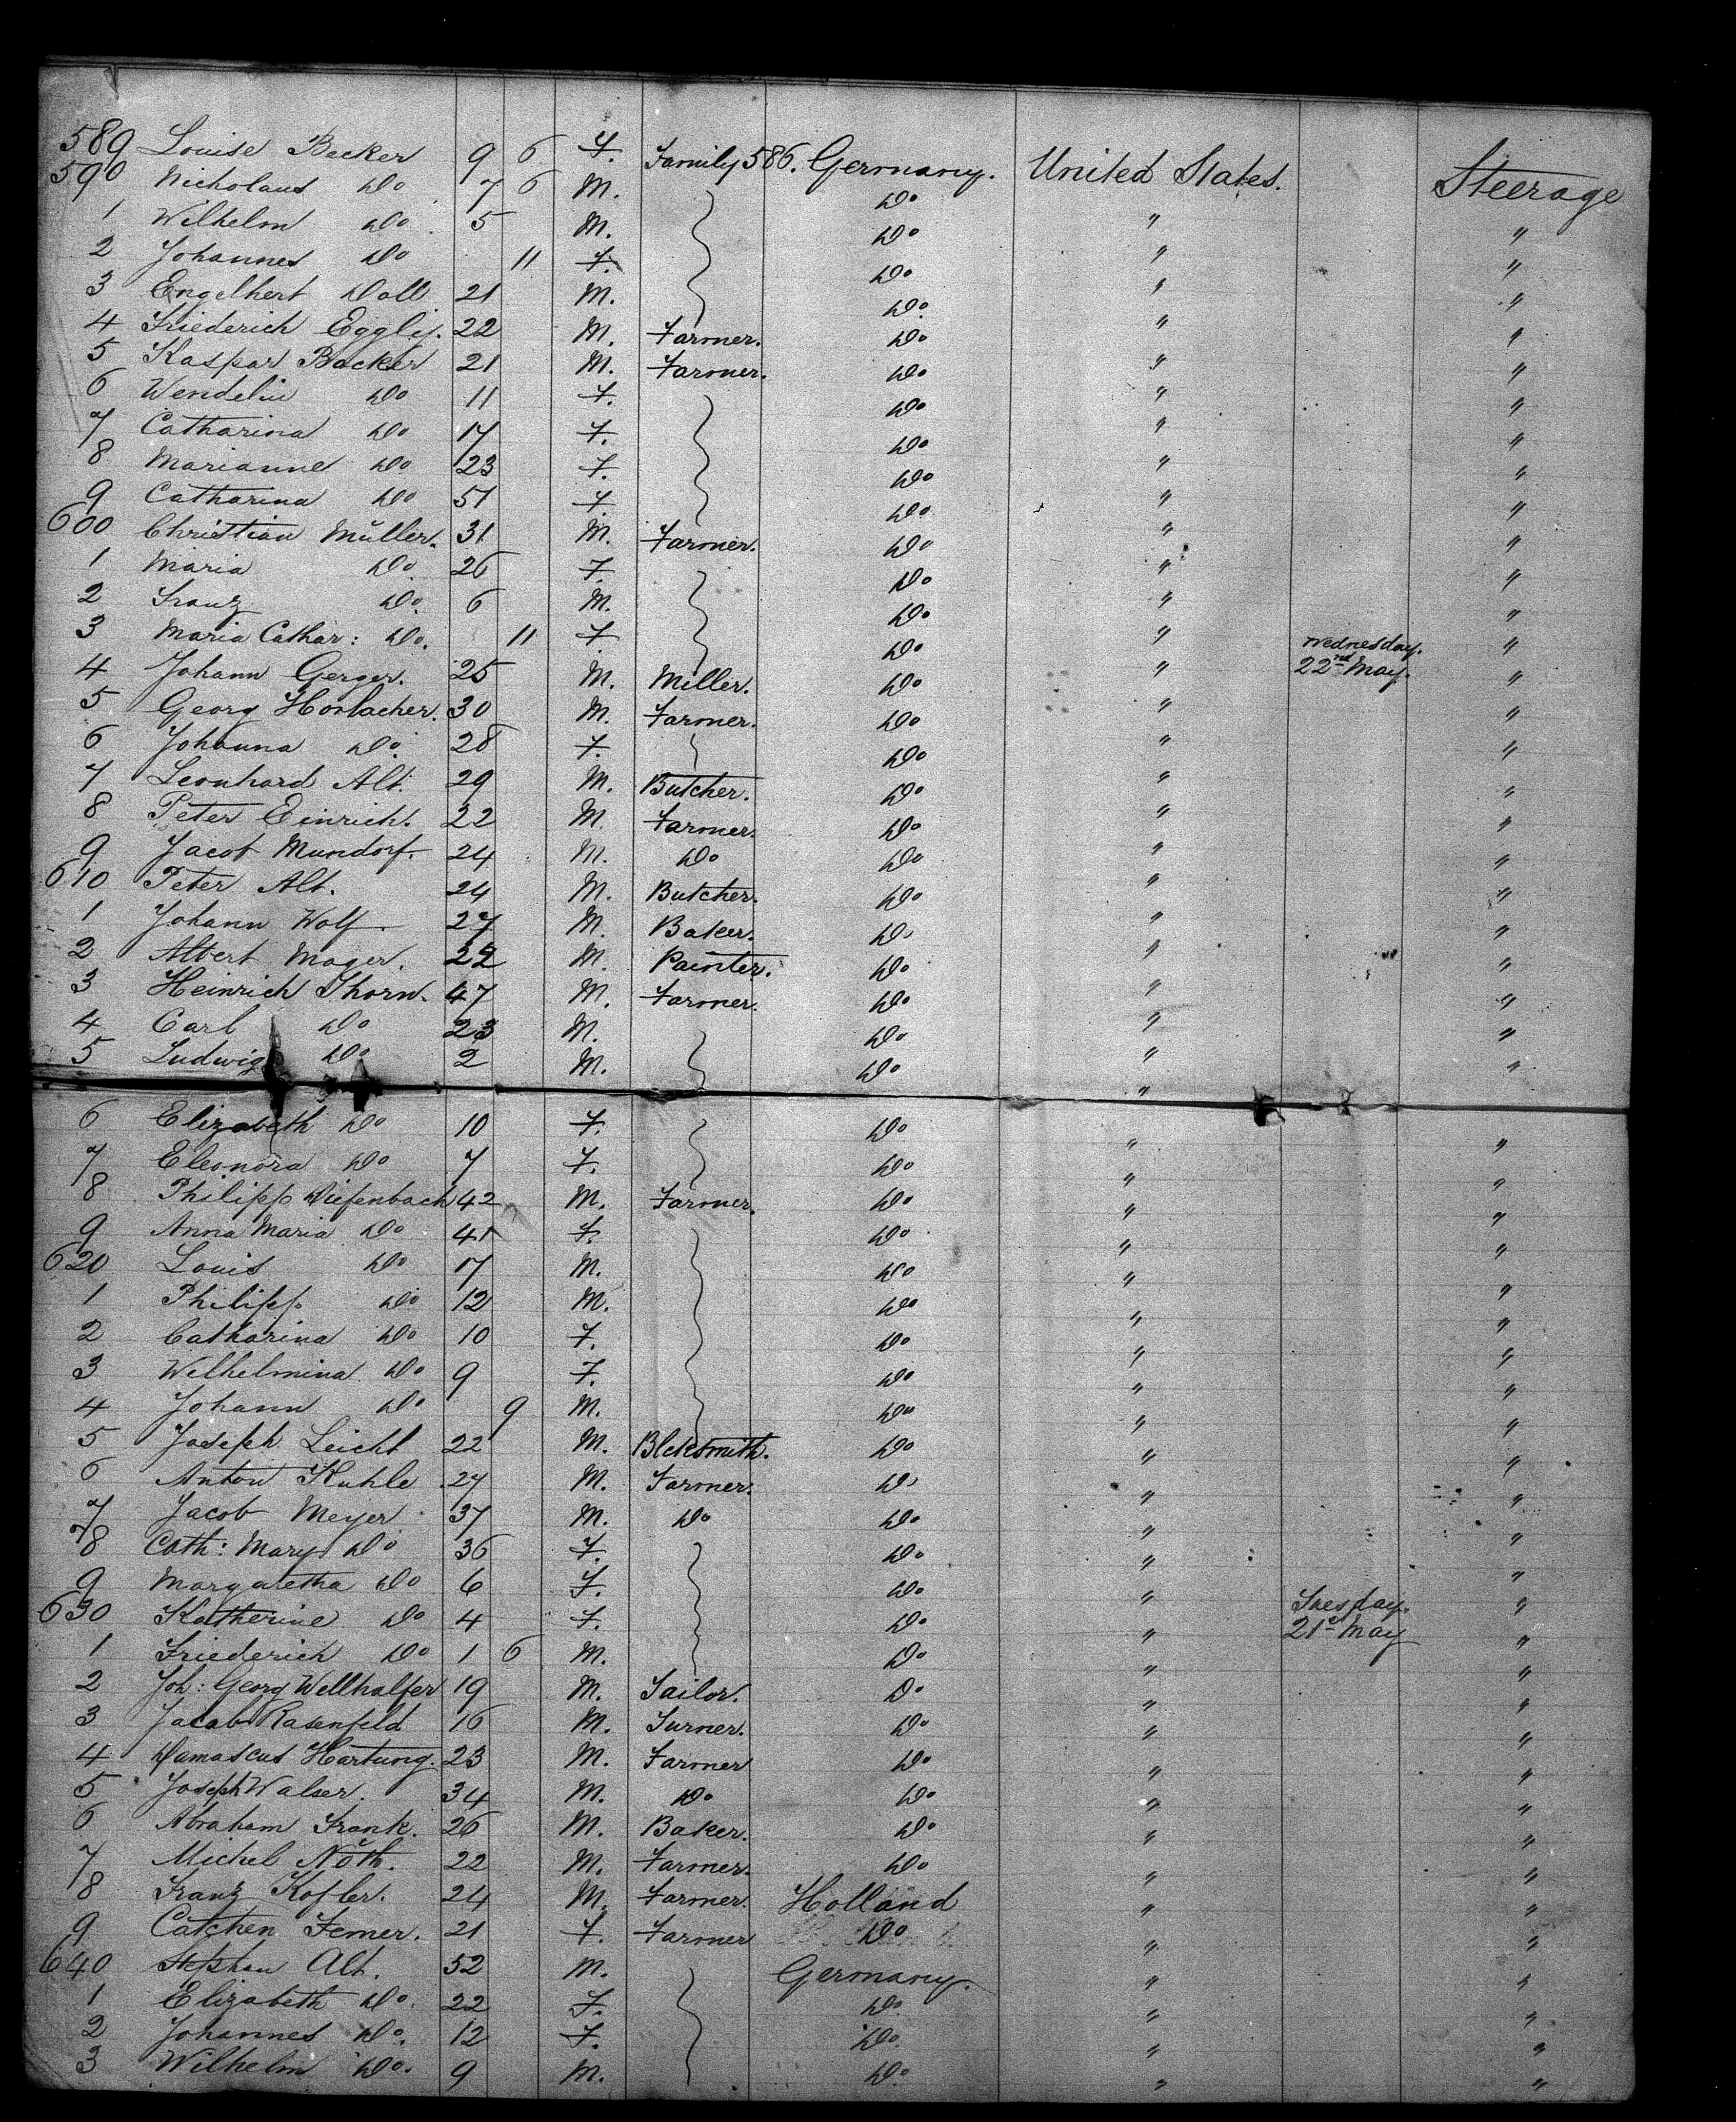 589 Louise Becker 9 6 F. Family 586. Germany. United States. Steerage
590 Nicholaus Do 7 6 M. Do " "
1 Wilhelm Do 5 M. Do " "
2 Johannes Do 11 F. Do " "
3 Engelhert Doll 21 M. Do. " "
4 Friederich Egglij. 22 M. Farmer. Do " "
5 Kaspar Backer 21 M. Farmer. Do " "
6 Wendelin Do 11 F. Do " "
7 Catharina Do 17 F. Do " "
8 Marianne Do 23 F. Do " "
9 Catharina Do 51 F. Do " "
600 Christian Müller. 31 M. Farmer. Do " "
1 Maria Do 26 F. Do " "
2 Franz Do. 6 M. Do " "
3 Maria Cathar: Do. 11 F. Do " Wednesday. "
4 Johann Gerger. 25 M. Miller. Do " 22nd May. "
5 Georg Horlacher. 30 M. Farmer. Do " "
6 Johanna Do. 28 F. Do " "
7 Leonhard Alt. 29 M. Butcher. Do " "
8 Peter Einrich. 22 M. Farmer. Do " "
9 Jacob Mundorf. 24 M. Do Do " "
610 Peter Alt. 24 M. Butcher. Do " "
1 Johann Wolf. 27 M. Baker. Do " "
2 Albert Mager. 22 M. Painter. Do " "
3 Heinrich Thorn. 47 M. Farmer. Do " "
4 Carl Do 23 M. Do " "
5 Ludwig Do 2 M. Do " "
6 Elizabeth Do 10 F. Do " "
7 Eleonora Do 7 F. Do " "
8 Philipp Diefenbach 42 M. Farmer. Do " "
9 Anna Maria Do 41 F. Do " "
620 Louis Do 17 M. Do " "
1 Philipp Do 12 M. Do " "
2 Catharina Do 10 F. Do " "
3 Welhelmina Do 9 F. Do " "
4 Johann Do 9 M. Do " "
5 Joseph Leicht 22 M. Blcksmith. Do " "
6 Anton Kuhle 27 M. Farmer. Do " "
7 Jacob Meyer 37 M. Do Do " "
8 Cath: Mary Do 36 F. Do " "
9 Margaretha Do 6 F. Do " Tuesday. "
630 Katherine Do 4 F. Do " 21st May "
1 Friederich Do 1 6 M. Do " "
2 Joh: Georg Wellhalfer 19 M. Tailor. Do " "
3 Jacob Rasenfeld 16 M. Turner. Do " "
4 Damascus Hartung. 23 M. Farmer Do " "
5 Joseph Walser. 34 M. Do Do " "
6 Abraham Frank. 26 M. Baker. Do " "
7 Michel Nöth. 22 M. Farmer. Do " "
8 Franz Kofler. 24 M. Farmer. Holland " "
9 Catchen Femer. 21 F. Farmer Do " "
640 Stephan Alt. 52 M. Germany. " "
1 Elizabeth Do. 22 F. Do. " "
2 Johannes Do. 12 F. Do. " "
3 Wilhelm Do. 9 M. Do. " "